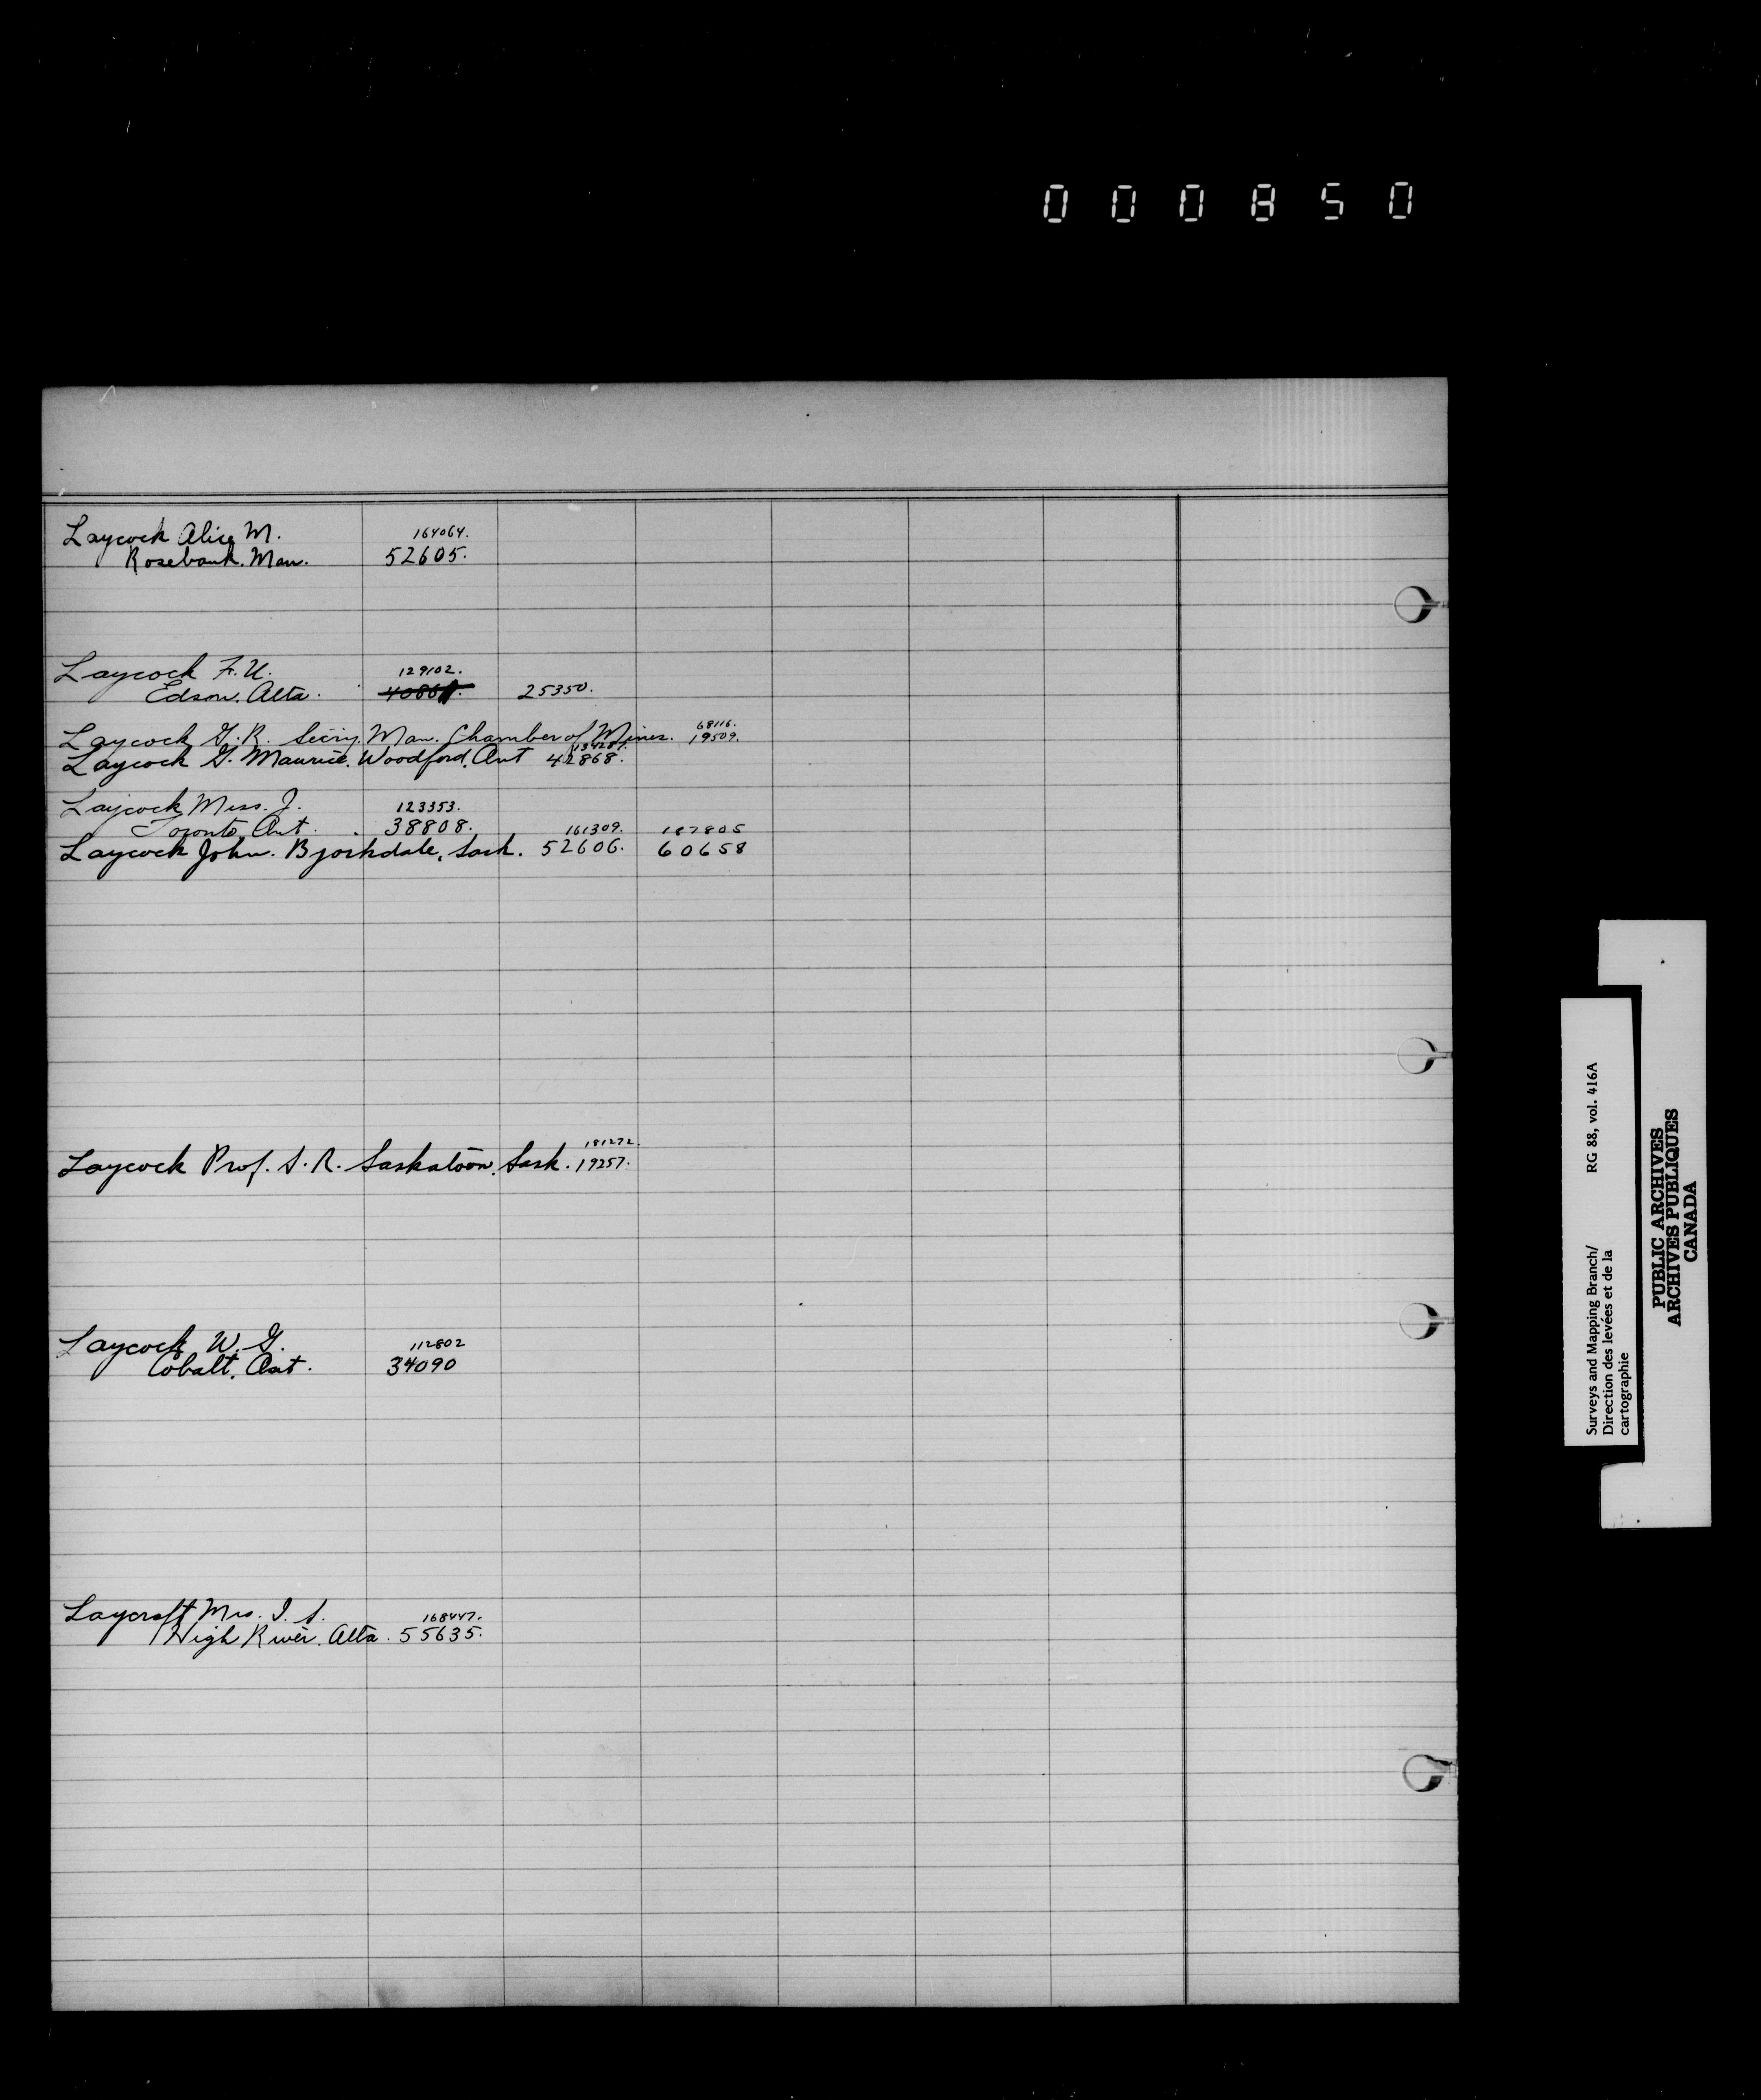 000850
Laycock Alice M. 164064.
Rosebank. Man. 52605.
Laycock F. U. 129102.
Edson. Alta. 25350.
68116.
Laycock G. R. Secry. Man. Chamber of Mines. 19509.
Laycock G. Maurice. Woodford. Ont 42868.
Laycock Miss. J. 123353.
Toronto, Ont. 38808. 161309. 182805
Laycock John. Bjorkdale, Sask. 52606. 60658
181272.
Laycock Prof. S. R. Saskatoon. Sask. 19257.
Laycock W. G. 112802
Cobalt. Ont. 34090
Laycraft Mrs. I. S. 168447.
High River. Alta. 55635.
Surveys and Mapping Branch/ RG 88, vol. 416A
Direction des levées et de la
cartographie
PUBLIC ARCHIVES
ARCHIVES PUBLIQUES
CANADA